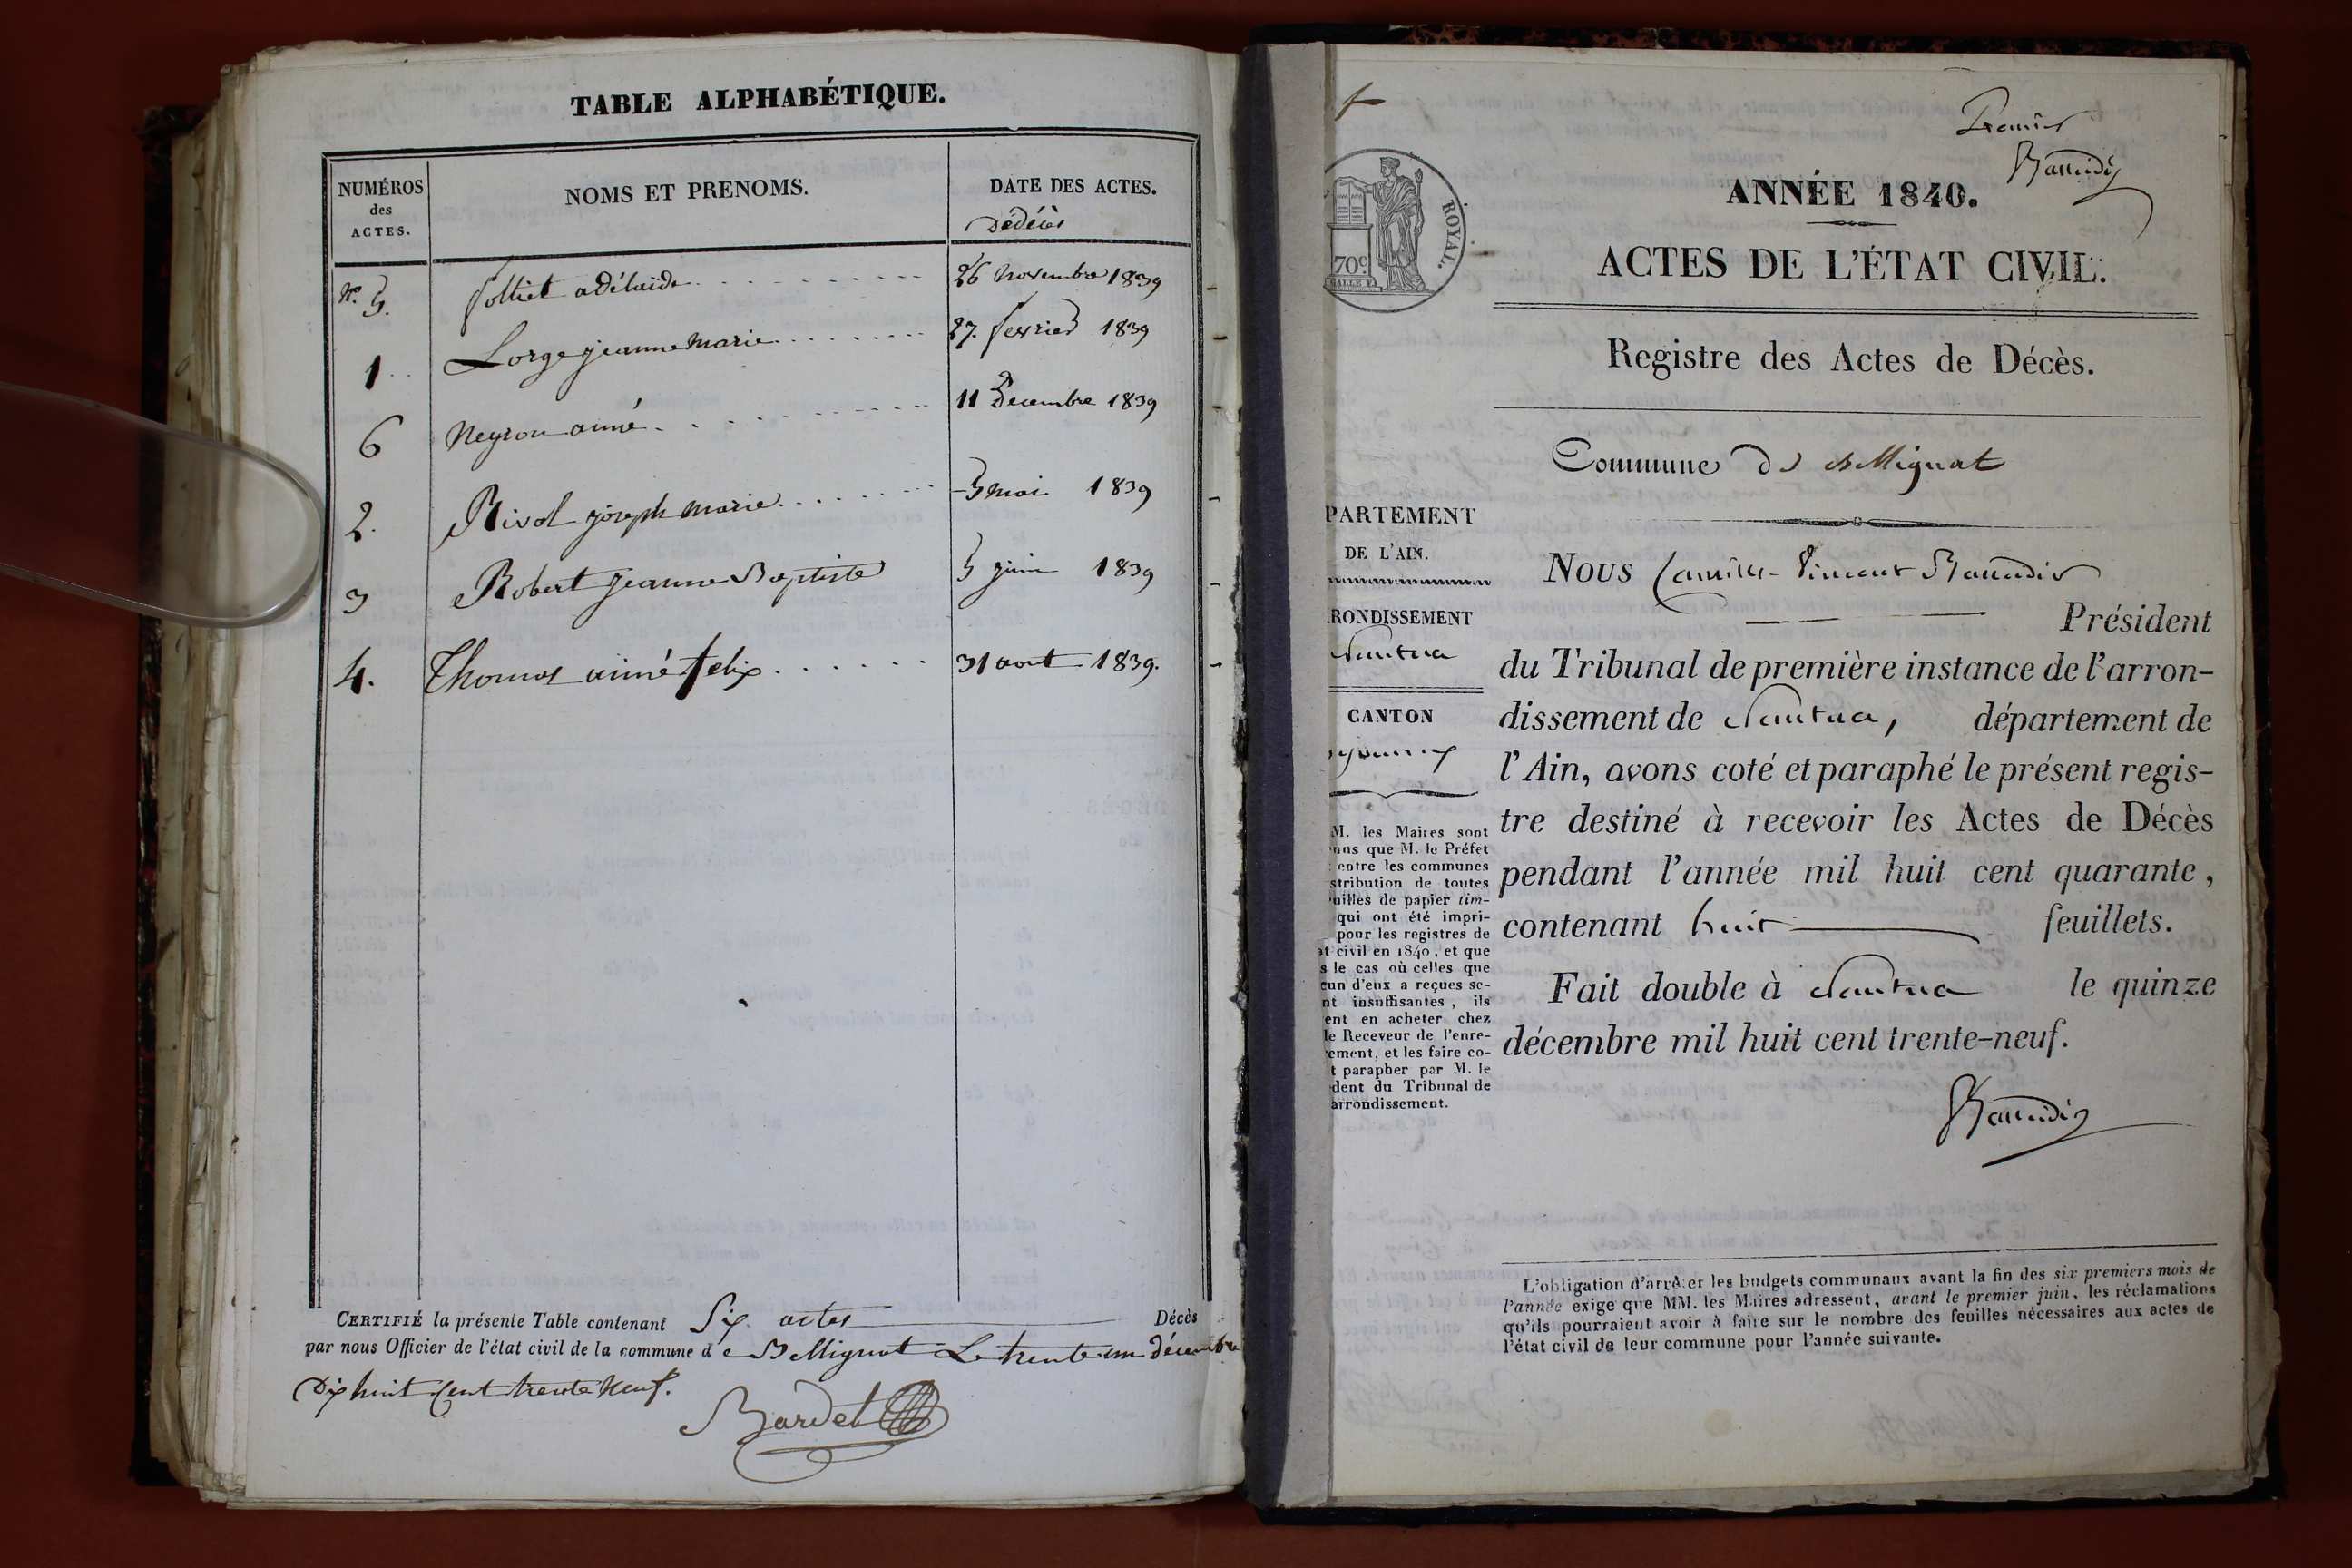 TABLE ALPHABÉTIQUE.
NUMÉROS des ACTES.
NOMS ET PRENOMS.
DATE DES ACTES.
Dédécès
N.º 5. folliet adélaide 26 Novembre 1839
1 Lorge jeanne Marie 27. fevrier 1839
6 Neyron aimé 11 Décembre 1839
2. Rivol joseph Marie 5 mai 1839
3 Robert jeanne Baptiste 5 juin 1839
4. Thomas aimé felix 31 aout 1839.
CERTIFIÉ la présente Table contenant Six actes Décès
par nous Officier de l'état civil de la commune d e Bellignat Le trente un décembre
Dix huit Cent trente Neuf.
Bardet
Premier
ANNÉE 1840.
ROYAL.
70c
ACTES DE L'ÉTAT CIVIL.
Registre des Actes de Décès.
Commune de Bellignat
PARTEMENT
DE L'AIN.
RONDISSEMENT
Nantua
CANTON
M. les Maires sont
que M. le Préfet
entre les communes
stribution de toutes
uilles de papier tim-
qui ont été impri-
pour les registres de
at civil en 1840, et que
s le cas où celles que
cun d'eux a reçues se-
nt insuffisantes, ils
ent en acheter chez
le Receveur de l'enre-
ement, et les faire co-
t parapher par M. le
dent du Tribunal de
arrondissement.
Nous Camille-Vincent
Président
du Tribunal de première instance de l'arron-
dissement de Nantua, département de
l'Ain, avons coté et paraphé le présent regis-
tre destiné à recevoir les Actes de Décès
pendant l'année mil huit cent quarante,
contenant huit feuillets.
Fait double à Nantua le quinze
décembre mil huit cent trente-neuf.
L'obligation d'arrêter les budgets communaux avant la fin des six premiers mois de
l'année exige que MM. les Maires adressent, avant le premier juin, les réclamations
qu'ils pourraient avoir à faire sur le nombre des feuilles nécessaires aux actes de
l'état civil de leur commune pour l'année suivante.